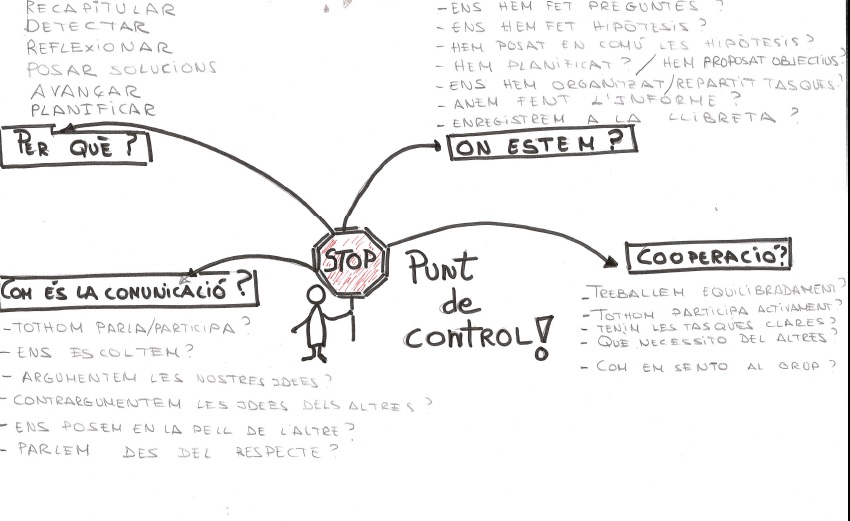 RECAPITULAR
DETECTAR
REFLEXIONAR
POSAR SOLUCIONS
AVANÇAR
PLANIFICAR
PER QUÈ?
- ENS HEM FET PREGUNTES?
- ENS HEM FET HIPÒTESIS?
- HEM POSAT EN COMÚ LES HIPÒTESIS?
- HEM PLANIFICAT? / HEM PROPOSAT OBJECTIUS?
- ENS HEM ORGANITZAT/REPARTIT TASQUES?
- ANEM FENT L'INFORME?
- ENREGISTREM A LA LLIBRETA?
ON ESTEM?
STOP
PUNT
de
CONTROL!
COOPERACIÓ?
- TREBALLEM EQUILIBRADAMENT?
- TOTHOM PARTICIPA ACTIVAMENT?
- TENIM LES TASQUES CLARES?
- QUE NECESSITO DEL ALTRES?
- COM EM SENTO AL GRUP?
COM ÉS LA COMUNICACIÓ?
- TOTHOM PARLA/PARTICIPA?
- ENS ESCOLTEM?
- ARGUMENTEM LES NOSTRES IDEES?
- CONTRARGUMENTEM LES IDEES DELS ALTRES?
- ENS POSEM EN LA PELL DE L'ALTRE?
- PARLEM DES DEL RESPECTE?